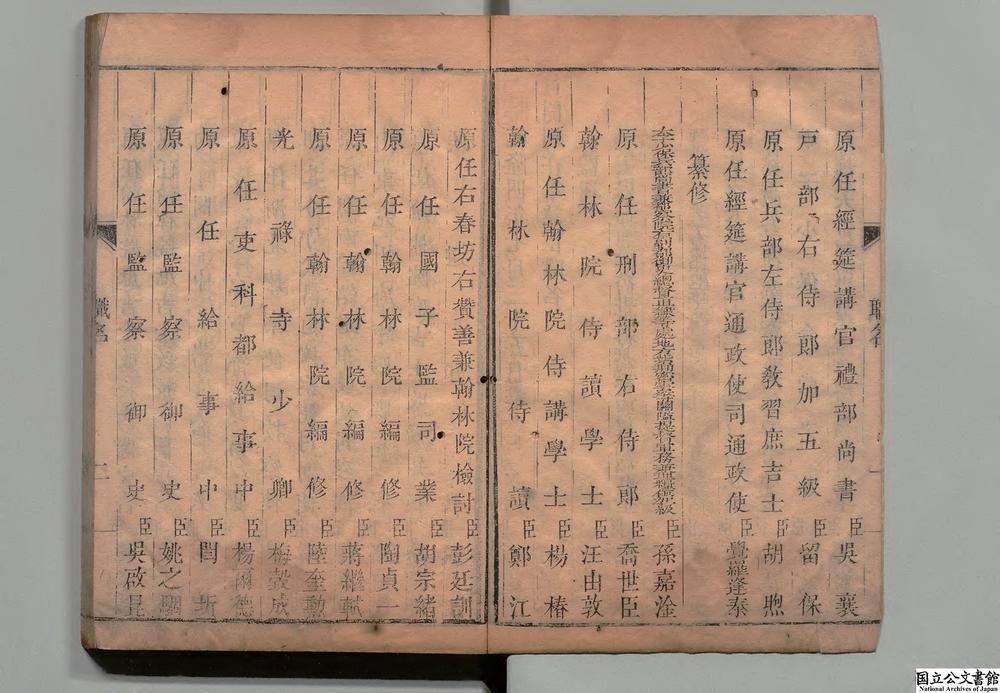 原任經筵講官禮部尚書臣吳襄
戶部右侍郎加五級臣留保
原任兵部左侍郎教習庶吉士臣胡煦
原任經筵講官通政使司通政使臣覺羅逢泰
纂修
臣孫嘉淦
原任刑部右侍郎臣喬世臣
翰林院侍讀學士臣汪由敦
原任翰林院侍講學士臣楊椿
翰林院侍讀臣鄭江
原任右春坊右贊善兼翰林院檢討臣彭廷訓
原任國子監司業臣胡宗緒
原任翰林院編修臣陶貞一
原任翰林院編修臣蔣繼軾
原任翰林院編修臣陸奎勳
光祿寺少卿臣梅瑴成
原任吏科都給事中臣楊爾德
原任給事中臣閆圻
原任監察御史臣姚之駰
原任監察御史臣吳啟昆
職名
一
職名
二
国立公文書館
National Archives of Japan